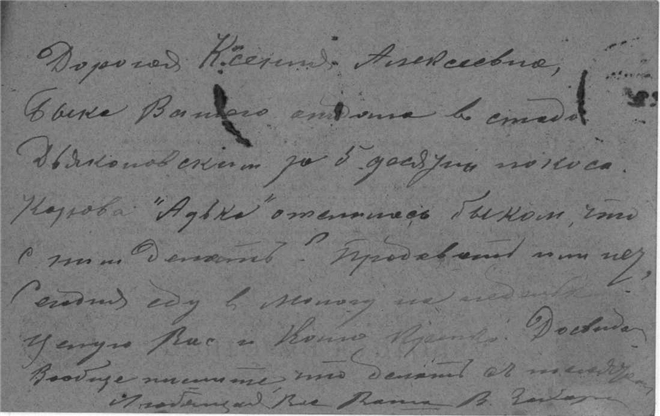 Дорогая Ксения Алексеевна,
Быка Вашего отдала в стадо
Дьяконовским за 5 десятин покоса.
Корова "Адька" отелилась быком, что
с ним делать? Продавать или нет,
Сегодня еду в Мологу на неделю.
Целую Вас и Катю крепко. Досвида
Вообще пишите, что делать с
Любящая Вас Ваша В.